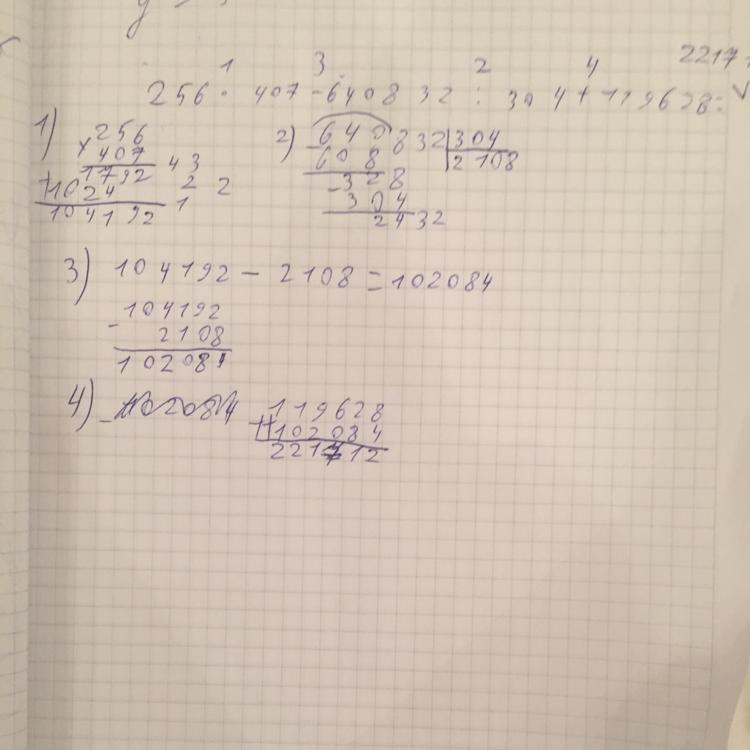 y
1 3 2 4 2217
256 · 407 - 640832 : 304 + 119628 =
1)
× 256
407
1792 4 3
+ 1024 2 2
104192 1
2) - 640832 | 304
608 | 2108
- 328
304
2432
3) 104192 - 2108 = 102084
- 104192
2108
102084
4)
119628
+ 102084
221712